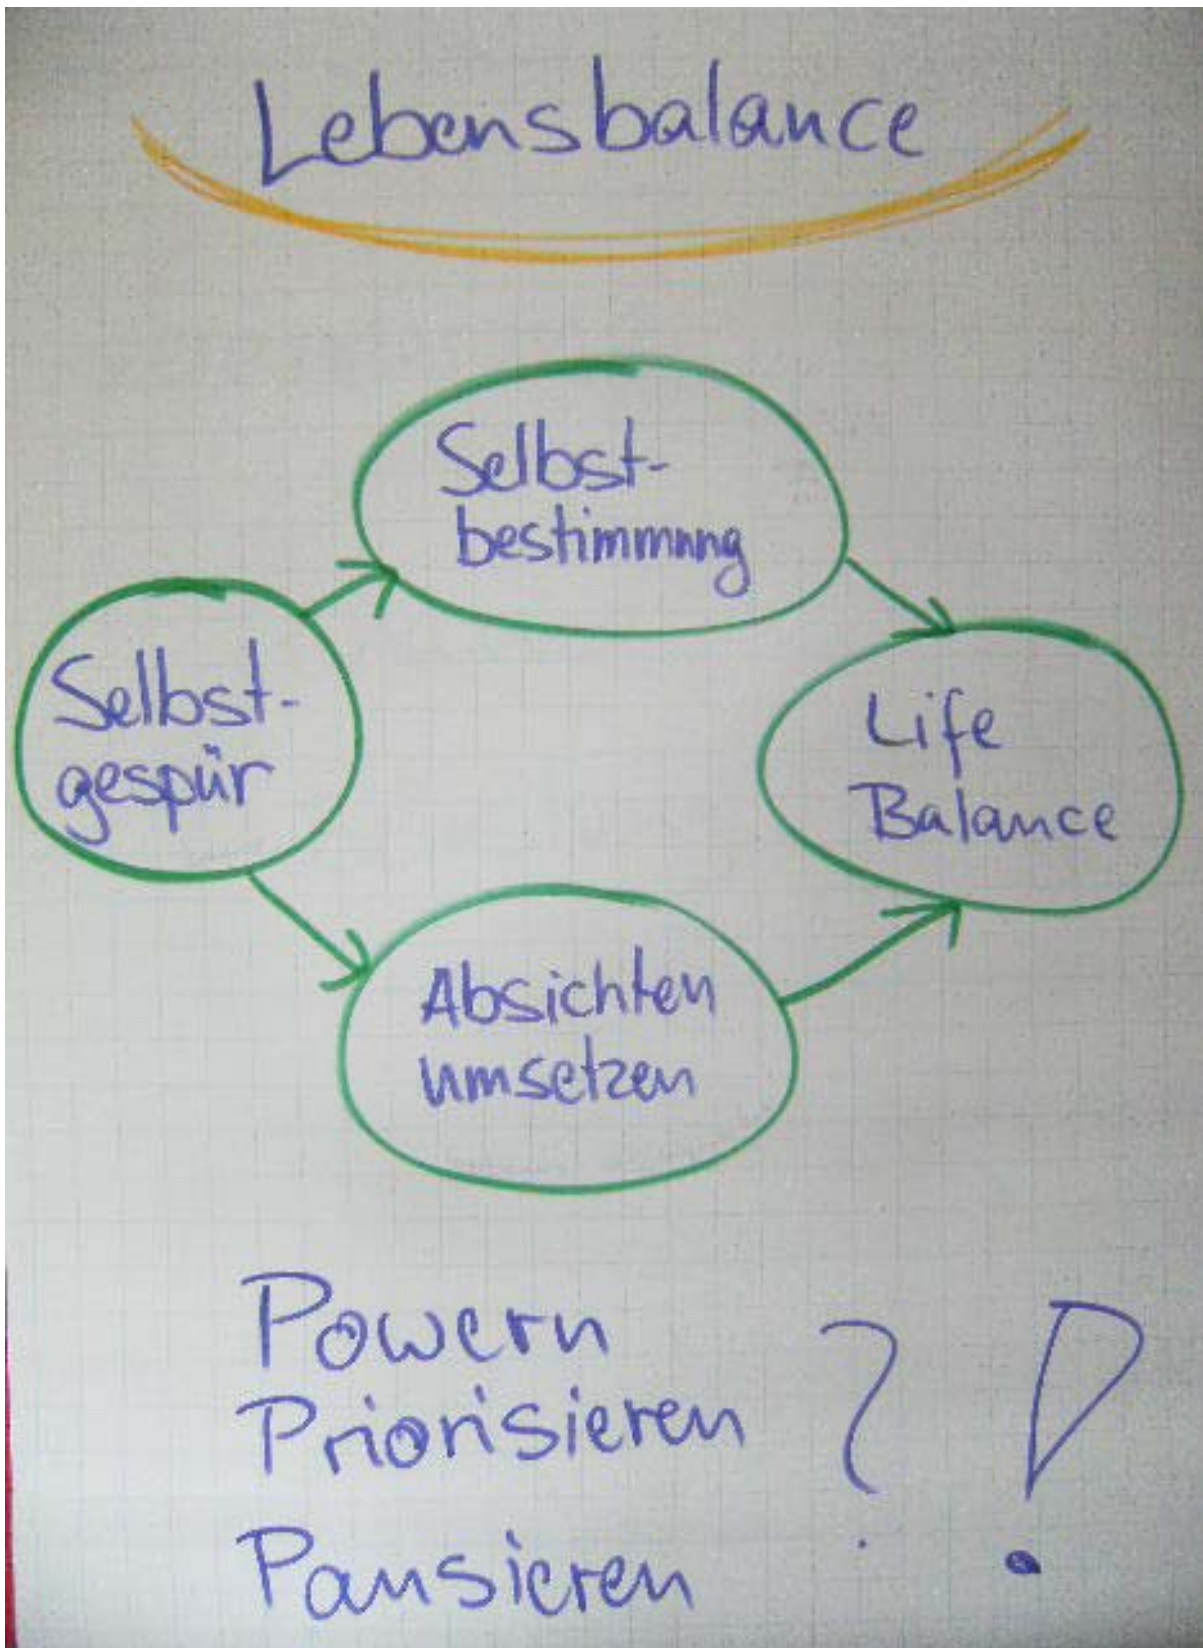 Lebensbalance
Selbst-
bestimmung
Selbst-
gespür
Life
Balance
Absichten
umsetzen
Powern
Priorisieren
Pausieren
? !